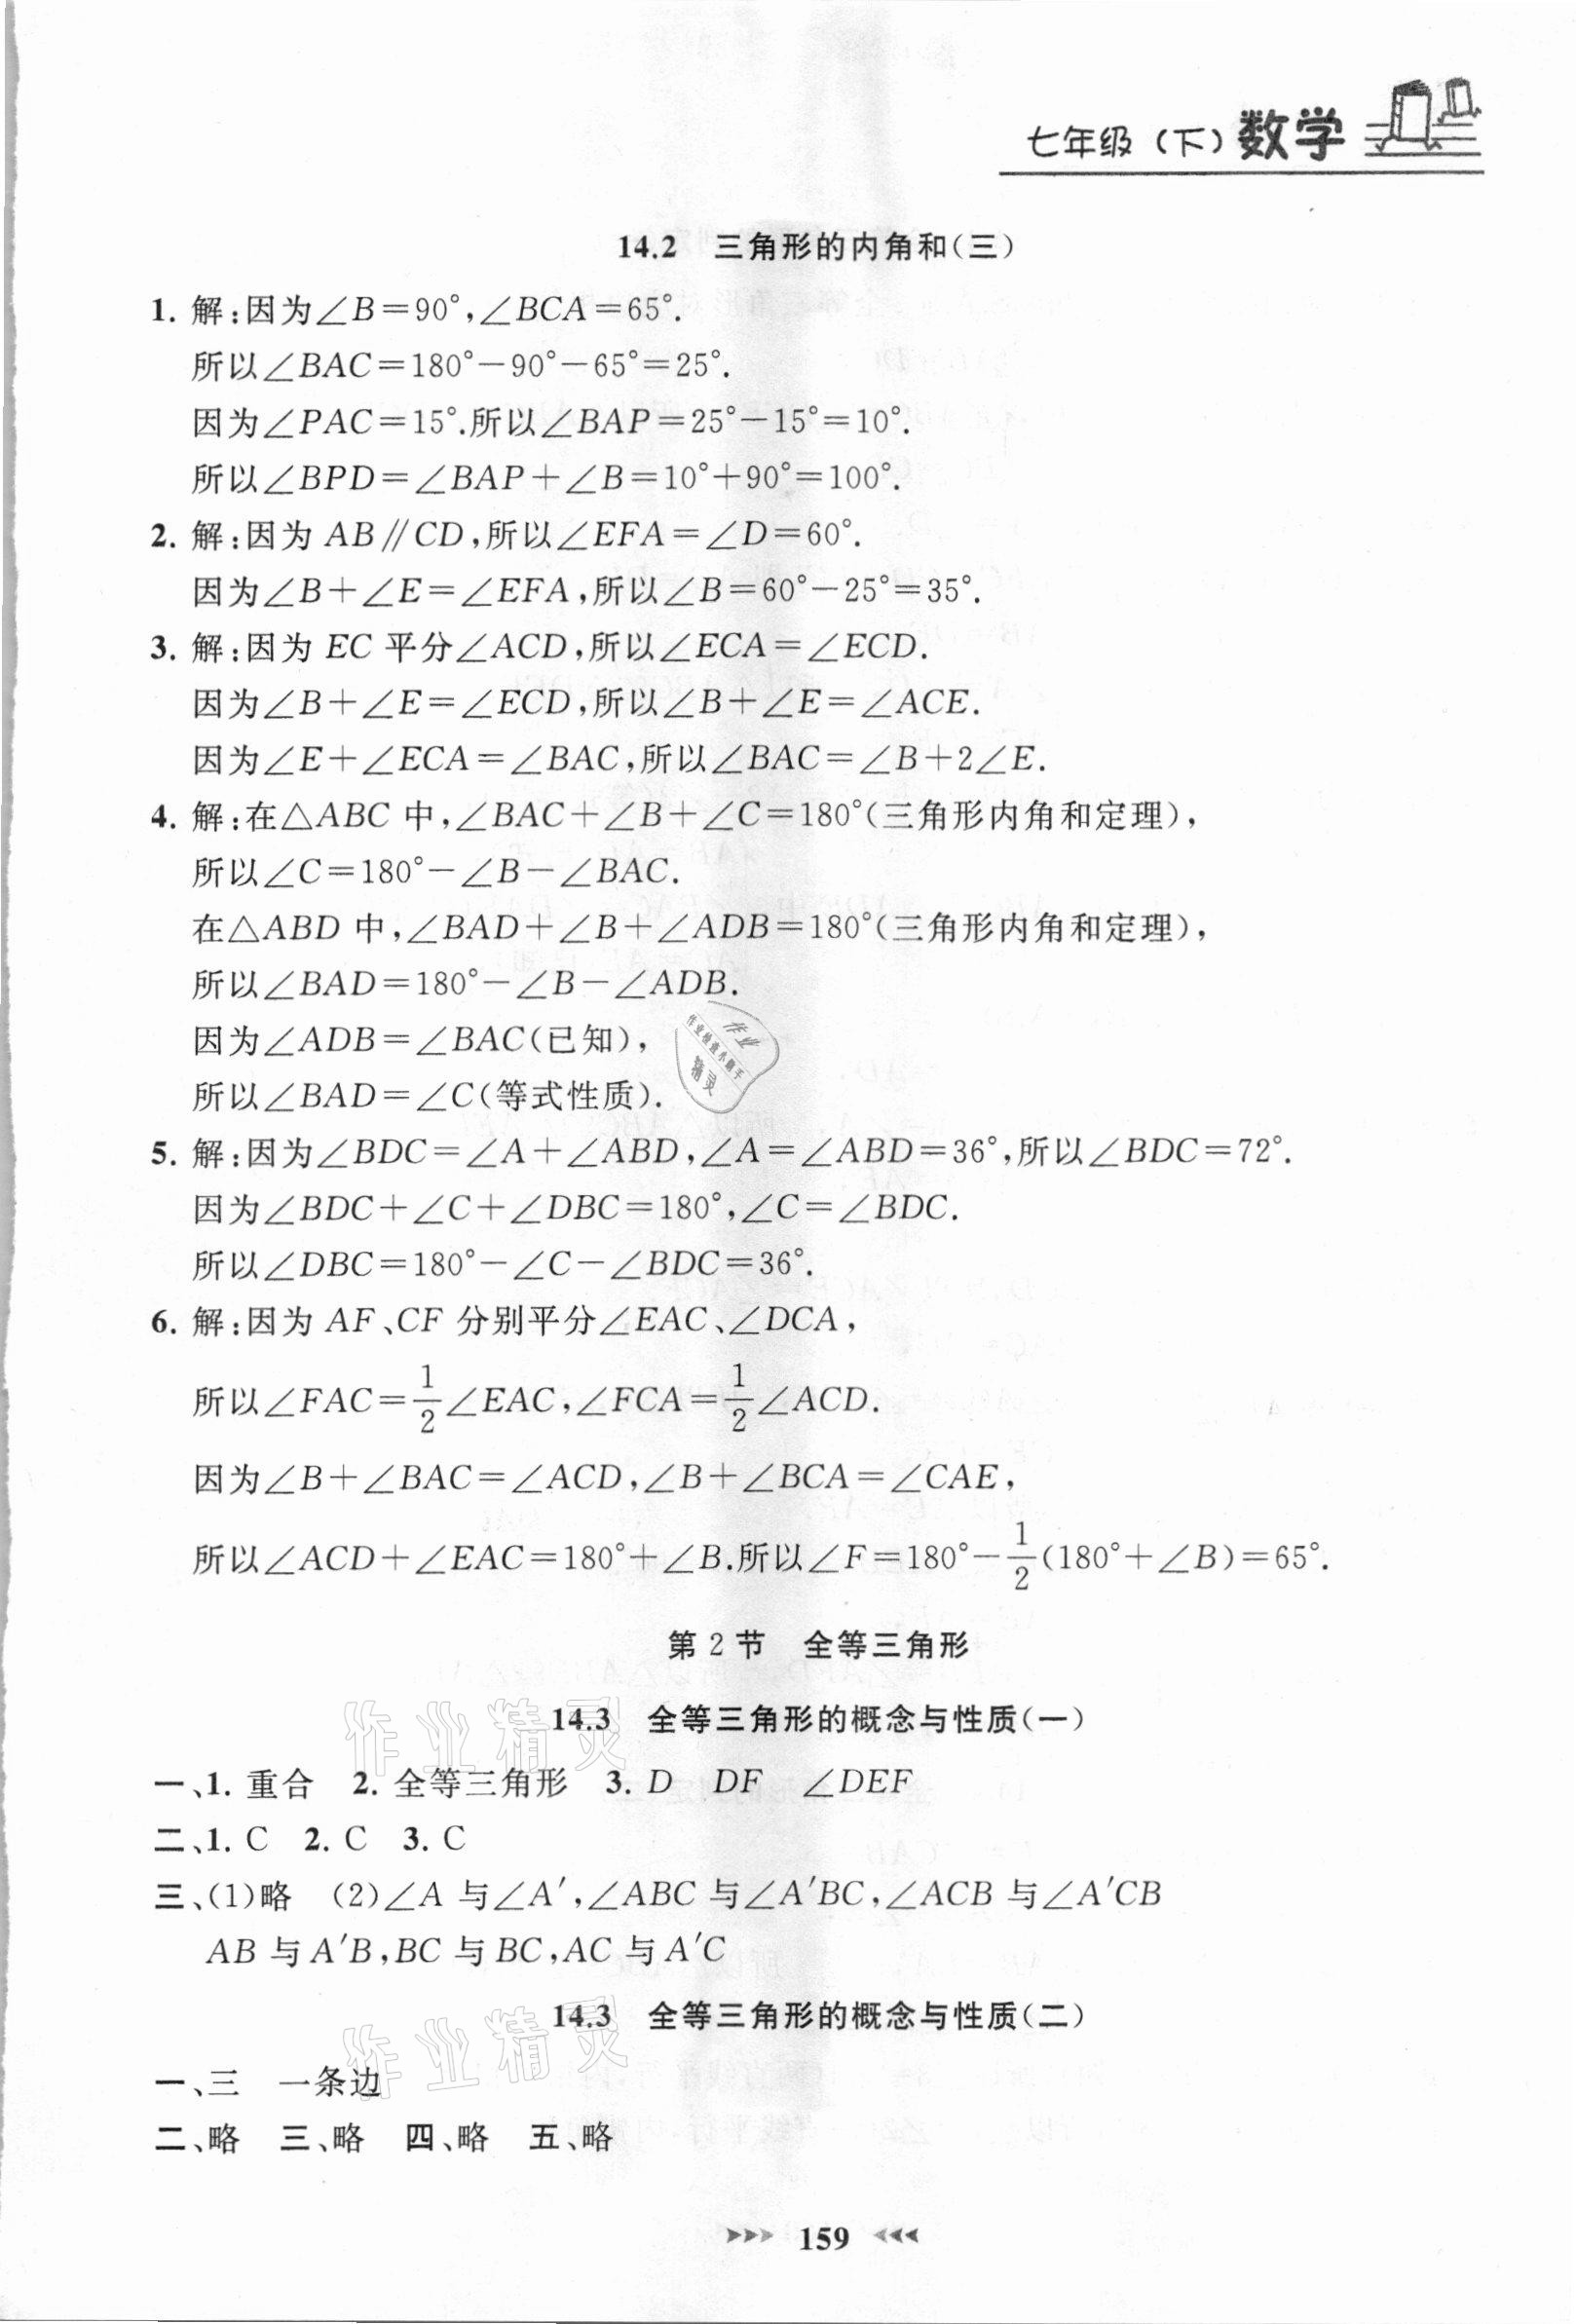 七年级（下）数学
14.2 三角形的内角和（三）
1. 解：因为∠B＝90°，∠BCA＝65°.
所以∠BAC＝180°－90°－65°＝25°.
因为∠PAC＝15°.所以∠BAP＝25°－15°＝10°.
所以∠BPD＝∠BAP＋∠B＝10°＋90°＝100°.
2. 解：因为 AB∥CD，所以∠EFA＝∠D＝60°.
因为∠B＋∠E＝∠EFA，所以∠B＝60°－25°＝35°.
3. 解：因为 EC 平分∠ACD，所以∠ECA＝∠ECD.
因为∠B＋∠E＝∠ECD，所以∠B＋∠E＝∠ACE.
因为∠E＋∠ECA＝∠BAC，所以∠BAC＝∠B＋2∠E.
4. 解：在△ABC 中，∠BAC＋∠B＋∠C＝180°（三角形内角和定理），
所以∠C＝180°－∠B－∠BAC.
在△ABD 中，∠BAD＋∠B＋∠ADB＝180°（三角形内角和定理），
所以∠BAD＝180°－∠B－∠ADB.
因为∠ADB＝∠BAC（已知），
所以∠BAD＝∠C（等式性质）.
作业
作业检查小助手
精灵
5. 解：因为∠BDC＝∠A＋∠ABD，∠A＝∠ABD＝36°，所以∠BDC＝72°.
因为∠BDC＋∠C＋∠DBC＝180°，∠C＝∠BDC.
所以∠DBC＝180°－∠C－∠BDC＝36°.
6. 解：因为 AF、CF 分别平分∠EAC、∠DCA，
所以∠FAC＝1/2∠EAC，∠FCA＝1/2∠ACD.
因为∠B＋∠BAC＝∠ACD，∠B＋∠BCA＝∠CAE，
所以∠ACD＋∠EAC＝180°＋∠B.所以∠F＝180°－1/2（180°＋∠B）＝65°.
第 2 节 全等三角形
作业精灵
14.3 全等三角形的概念与性质（一）
一、1. 重合 2. 全等三角形 3. D DF ∠DEF
二、1. C 2. C 3. C
三、（1）略 （2）∠A 与∠A′，∠ABC 与∠A′BC，∠ACB 与∠A′CB
AB 与 A′B，BC 与 BC，AC 与 A′C
作业精灵
14.3 全等三角形的概念与性质（二）
一、三 一条边
二、略 三、略 四、略 五、略
159